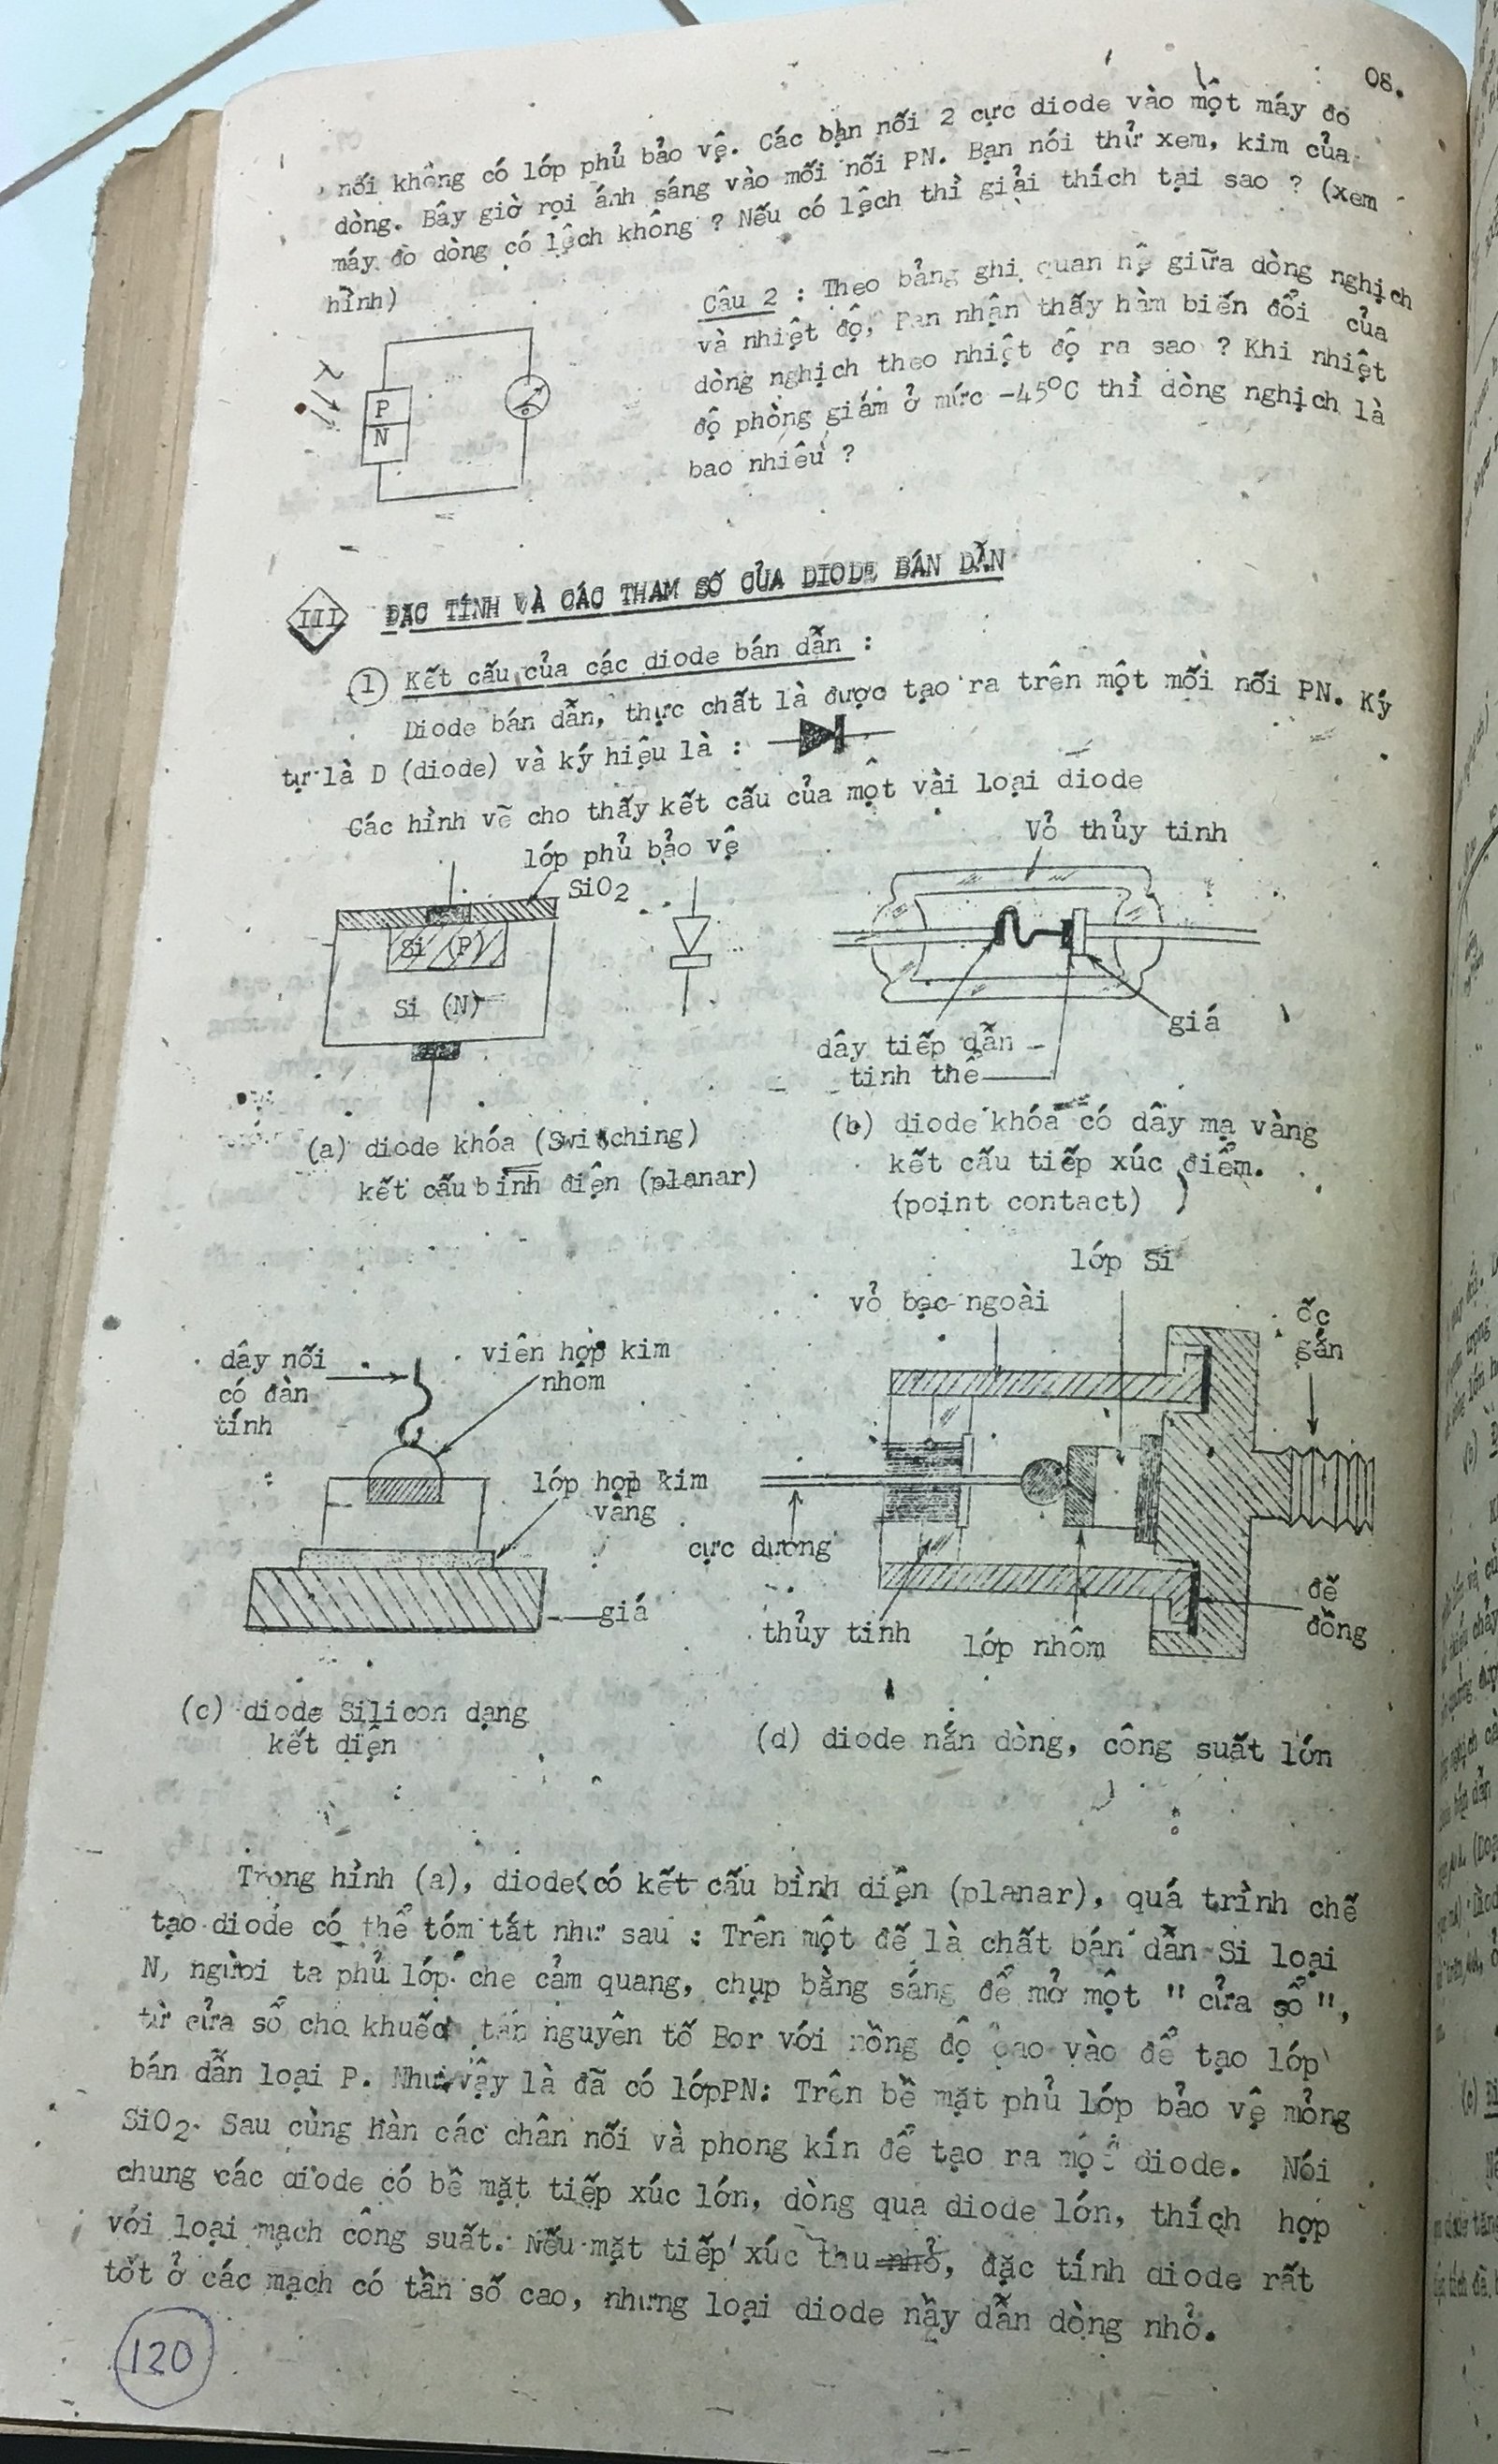 08.
nối không có lớp phủ bảo vệ. Các bạn nối 2 cực diode vào một máy đo
dòng. Bây giờ rọi ánh sáng vào mối nối PN. Bạn nói thử xem, kim của
máy đo dòng có lệch không ? Nếu có lệch thì giải thích tại sao ? (xem
hình)
Câu 2 : Theo bảng ghi quan hệ giữa dòng nghịch
và nhiệt độ, bạn nhận thấy hàm biến đổi của
dòng nghịch theo nhiệt độ ra sao ? Khi nhiệt
độ phòng giảm ở mức -45°C thì dòng nghịch là
bao nhiêu ?
λ
P
N
III ĐẶC TÍNH VÀ CÁC THAM SỐ CỦA DIODE BÁN DẪN
1 Kết cấu của các diode bán dẫn :
Diode bán dẫn, thực chất là được tạo ra trên một mối nối PN. Ký
tự là D (diode) và ký hiệu là :
Các hình vẽ cho thấy kết cấu của một vài loại diode
lớp phủ bảo vệ
SiO2
Si (P)
Si (N)
Vỏ thủy tinh
dây tiếp dẫn
tinh thể
giá
(a) diode khóa (Switching)
kết cấu bình điện (planar)
(b) diode khóa có dây mạ vàng
kết cấu tiếp xúc điểm.
(point contact)
dây nối
có đàn
tính
viên hợp kim
nhôm
lớp hợp kim
vàng
giá
(c) diode Silicon dạng
kết diện
lớp Si
vỏ bọc ngoài
ốc
gắn
cực dương
thủy tinh
lớp nhôm
đế
đồng
(d) diode nắn dòng, công suất lớn
Trong hình (a), diode có kết cấu bình diện (planar), quá trình chế
tạo diode có thể tóm tắt như sau : Trên một đế là chất bán dẫn Si loại
N, người ta phủ lớp che cảm quang, chụp bằng sáng để mở một " cửa sổ ",
từ cửa sổ cho khuếch tán nguyên tố Bor với nồng độ cao vào để tạo lớp
bán dẫn loại P. Như vậy là đã có lớp PN: Trên bề mặt phủ lớp bảo vệ mỏng
SiO2. Sau cùng hàn các chân nối và phong kín để tạo ra một diode. Nói
chung các diode có bề mặt tiếp xúc lớn, dòng qua diode lớn, thích hợp
với loại mạch công suất. Nếu mặt tiếp xúc thu nhỏ, đặc tính diode rất
tốt ở các mạch có tần số cao, nhưng loại diode nầy dẫn dòng nhỏ.
120